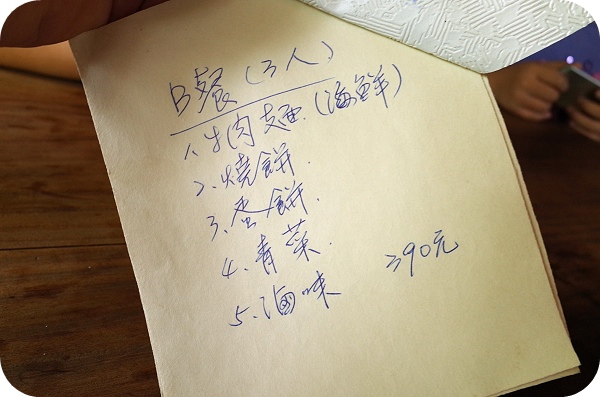 B餐(3人)
1.牛肉麵.(海鮮)
2.燒餅.
3.蛋餅.
4.青菜.
5.滷味 390元